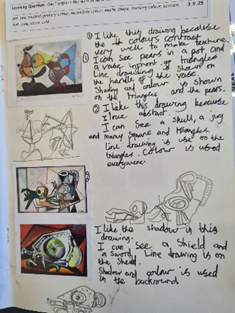 3.9.25
① I like this drawing because
the colours contrast
very well to make texture.
I can see pears in a pot and
a vase infront of triangles
Line drawing is shown on
the handle of the vase.
Shading and colour is shown
on the triangles and the pears.
② I like this drawing because
I true abstact.
I can see a skull, a jug
and many square and triangles
Line drawing is used on the
triangles. Colour is used
everywhere.
I like the shadow in this
drawing.
I can see a Shield and
a Sword. Line drawing is on
the Shead.
Shadow and colour is used
in the backround